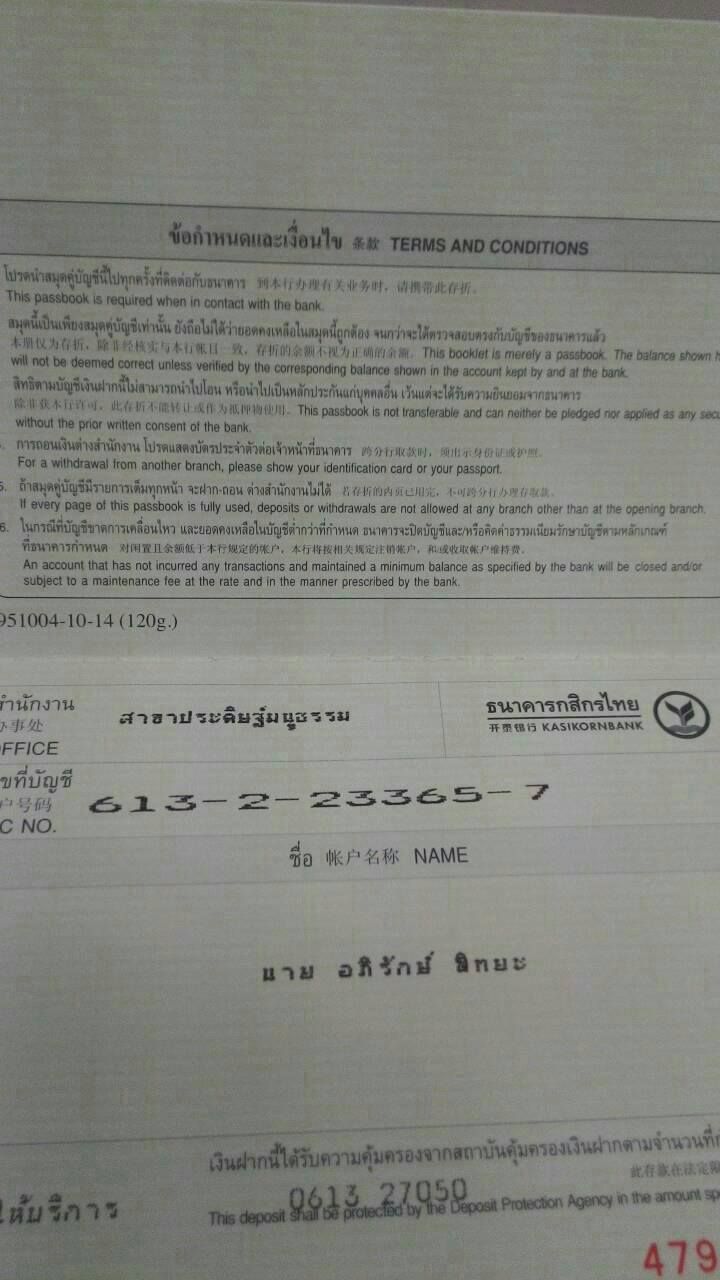 ข้อกำหนดและเงื่อนไข 条款 TERMS AND CONDITIONS
โปรดนำสมุดคู่บัญชีนี้ไปทุกครั้งที่ติดต่อกับธนาคาร 到本行办理有关业务时，请携带此存折。
This passbook is required when in contact with the bank.
สมุดนี้เป็นเพียงสมุดคู่บัญชีเท่านั้น ยังถือไม่ได้ว่ายอดคงเหลือในสมุดนี้ถูกต้อง จนกว่าจะได้ตรวจสอบตรงกับบัญชีของธนาคารแล้ว
本册仅为存折，除非经核实与本行帐目一致，存折的余额不视为正确的余额。This booklet is merely a passbook. The balance shown
will not be deemed correct unless verified by the corresponding balance shown in the account kept by and at the bank.
สิทธิตามบัญชีเงินฝากนี้ไม่สามารถนำไปโอน หรือนำไปเป็นหลักประกันแก่บุคคลอื่น เว้นแต่จะได้รับความยินยอมจากธนาคาร
除非获本行许可，此存折不能转让或作为抵押物使用。This passbook is not transferable and can neither be pledged nor applied as any
without the prior written consent of the bank.
การถอนเงินต่างสำนักงาน โปรดแสดงบัตรประจำตัวต่อเจ้าหน้าที่ธนาคาร 跨分行取款时，须出示身份证或护照。
For a withdrawal from another branch, please show your identification card or your passport.
5. ถ้าสมุดคู่บัญชีมีรายการเต็มทุกหน้า จะฝาก-ถอน ต่างสำนักงานไม่ได้ 若存折的内页已用完，不可跨分行办理存取款。
If every page of this passbook is fully used, deposits or withdrawals are not allowed at any branch other than at the opening branch.
6. ในกรณีที่บัญชีขาดการเคลื่อนไหว และยอดคงเหลือในบัญชีต่ำกว่าที่กำหนด ธนาคารจะปิดบัญชีและ/หรือคิดค่าธรรมเนียมรักษาบัญชีตามหลักเกณฑ์
ที่ธนาคารกำหนด 对闲置且余额低于本行规定的帐户，本行将按相关规定注销帐户，和或收取帐户维持费。
An account that has not incurred any transactions and maintained a minimum balance as specified by the bank will be closed and/or
subject to a maintenance fee at the rate and in the manner prescribed by the bank.
951004-10-14 (120g.)
สำนักงาน
办事处
OFFICE
สาขาประดิษฐ์มนูธรรม
ธนาคารกสิกรไทย
开泰银行 KASIKORNBANK
เลขที่บัญชี
户号码
C NO.
613-2-23365-7
ชื่อ 帐户名称 NAME
นาย อภิรักษ์ พิทยะ
เงินฝากนี้ได้รับความคุ้มครองจากสถาบันคุ้มครองเงินฝากตามจำนวนที่
此存款在法定限
0613 27050
This deposit shall be protected by the Deposit Protection Agency in the amount
ให้บริการ
479